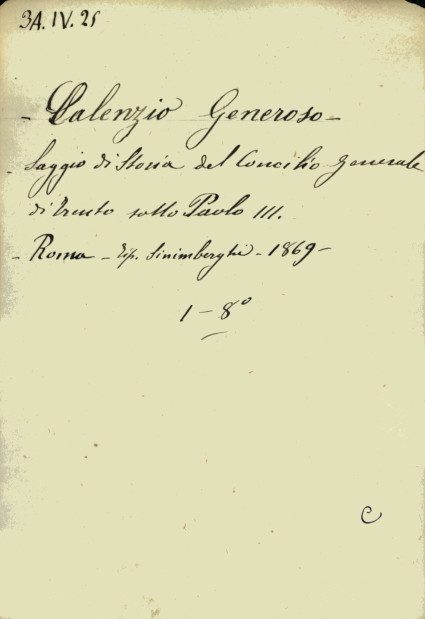 3A.IV.25
- Calenzio Generoso -
- Saggio di Storia del Concilio generale
di Trento sotto Paolo III.
- Roma - Tip. Sinimberghi - 1869 -
1 - 8°
C